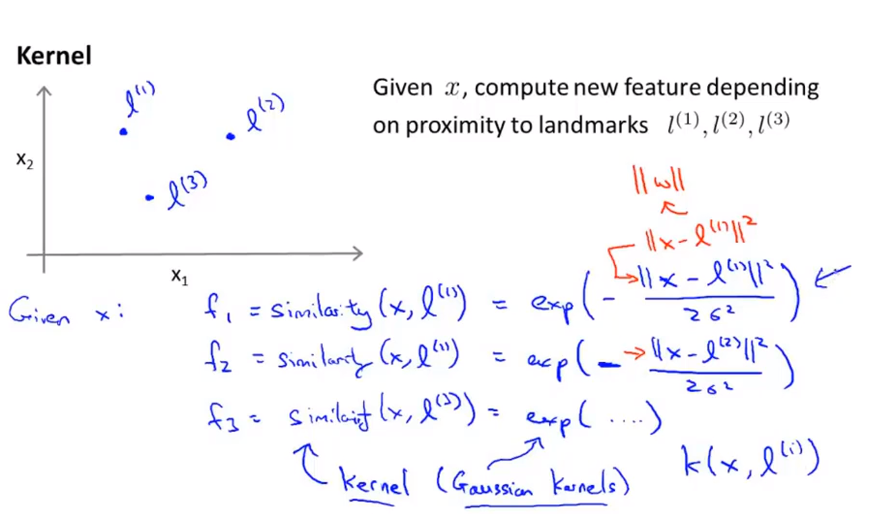 Kernel
l⁽¹⁾
l⁽²⁾
l⁽³⁾
x₂
x₁
Given x, compute new feature depending
on proximity to landmarks l⁽¹⁾, l⁽²⁾, l⁽³⁾
||w||
||x - l⁽¹⁾||²
Given x: f₁ = similarity(x, l⁽¹⁾) = exp(- ||x - l⁽¹⁾||² / 2σ²)
f₂ = similarity(x, l⁽¹⁾) = exp(- ||x - l⁽²⁾||² / 2σ²)
f₃ = similarity(x, l⁽³⁾) = exp(....)
kernel (Gaussian kernels) k(x, l⁽ⁱ⁾)